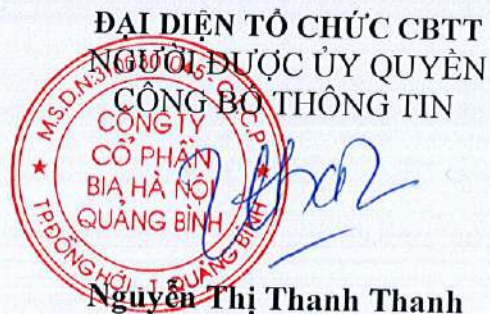 ĐẠI DIỆN TỔ CHỨC CBTT
NGƯỜI ĐƯỢC ỦY QUYỀN
CÔNG BỐ THÔNG TIN
CÔNG TY
CỔ PHẦN
BIA HÀ NỘI
QUẢNG BÌNH
TP.ĐỒNG HỚI - T. QUẢNG BÌNH
Nguyễn Thị Thanh Thanh